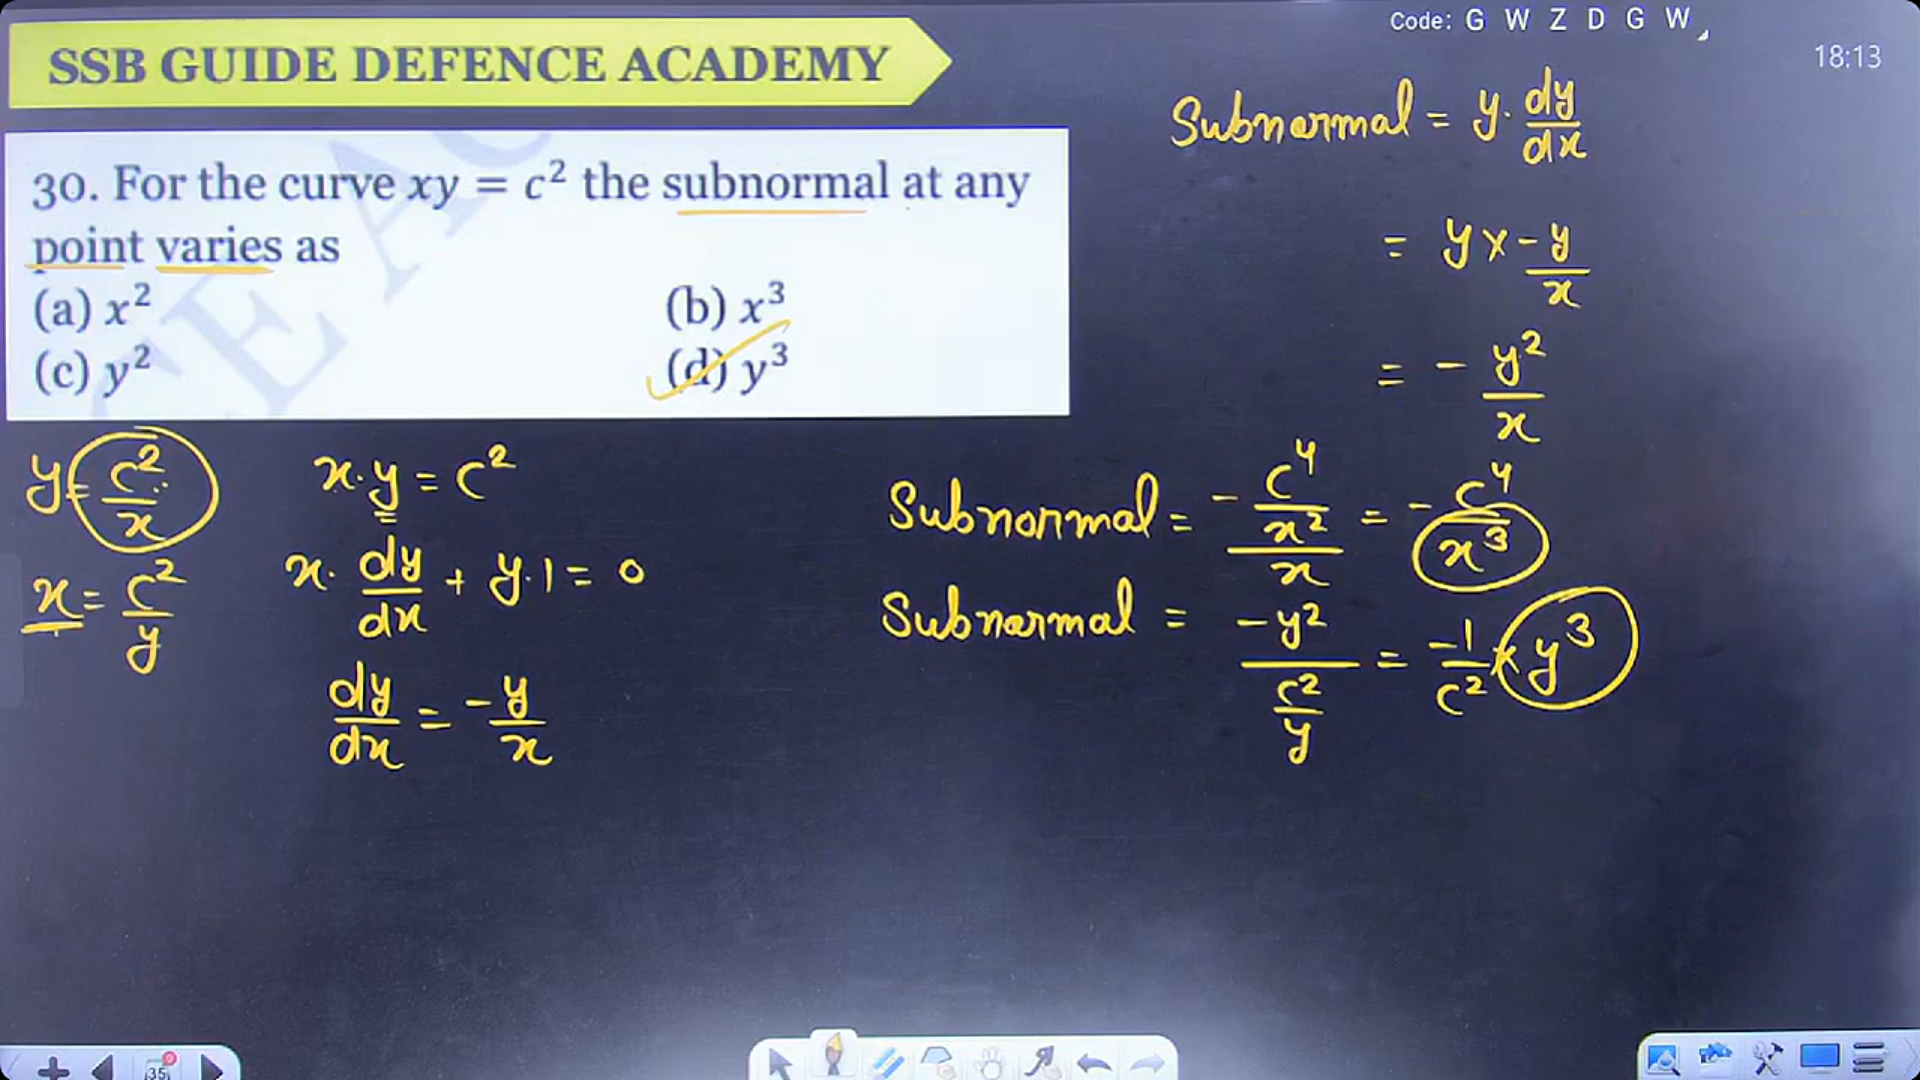 Code: G W Z D G W
18:13
SSB GUIDE DEFENCE ACADEMY
30. For the curve xy = c² the subnormal at any
point varies as
(a) x²
(b) x³
(c) y²
(d) y³
y = c²/x
x = c²/y
x·y = c²
x· dy/dx + y·1 = 0
dy/dx = -y/x
Subnormal = y· dy/dx
= y × -y/x
= - y²/x
Subnormal = - (c⁴/x²)/x = - c⁴/x³
Subnormal = -y²/(c²/y) = -1/c² × y³
35